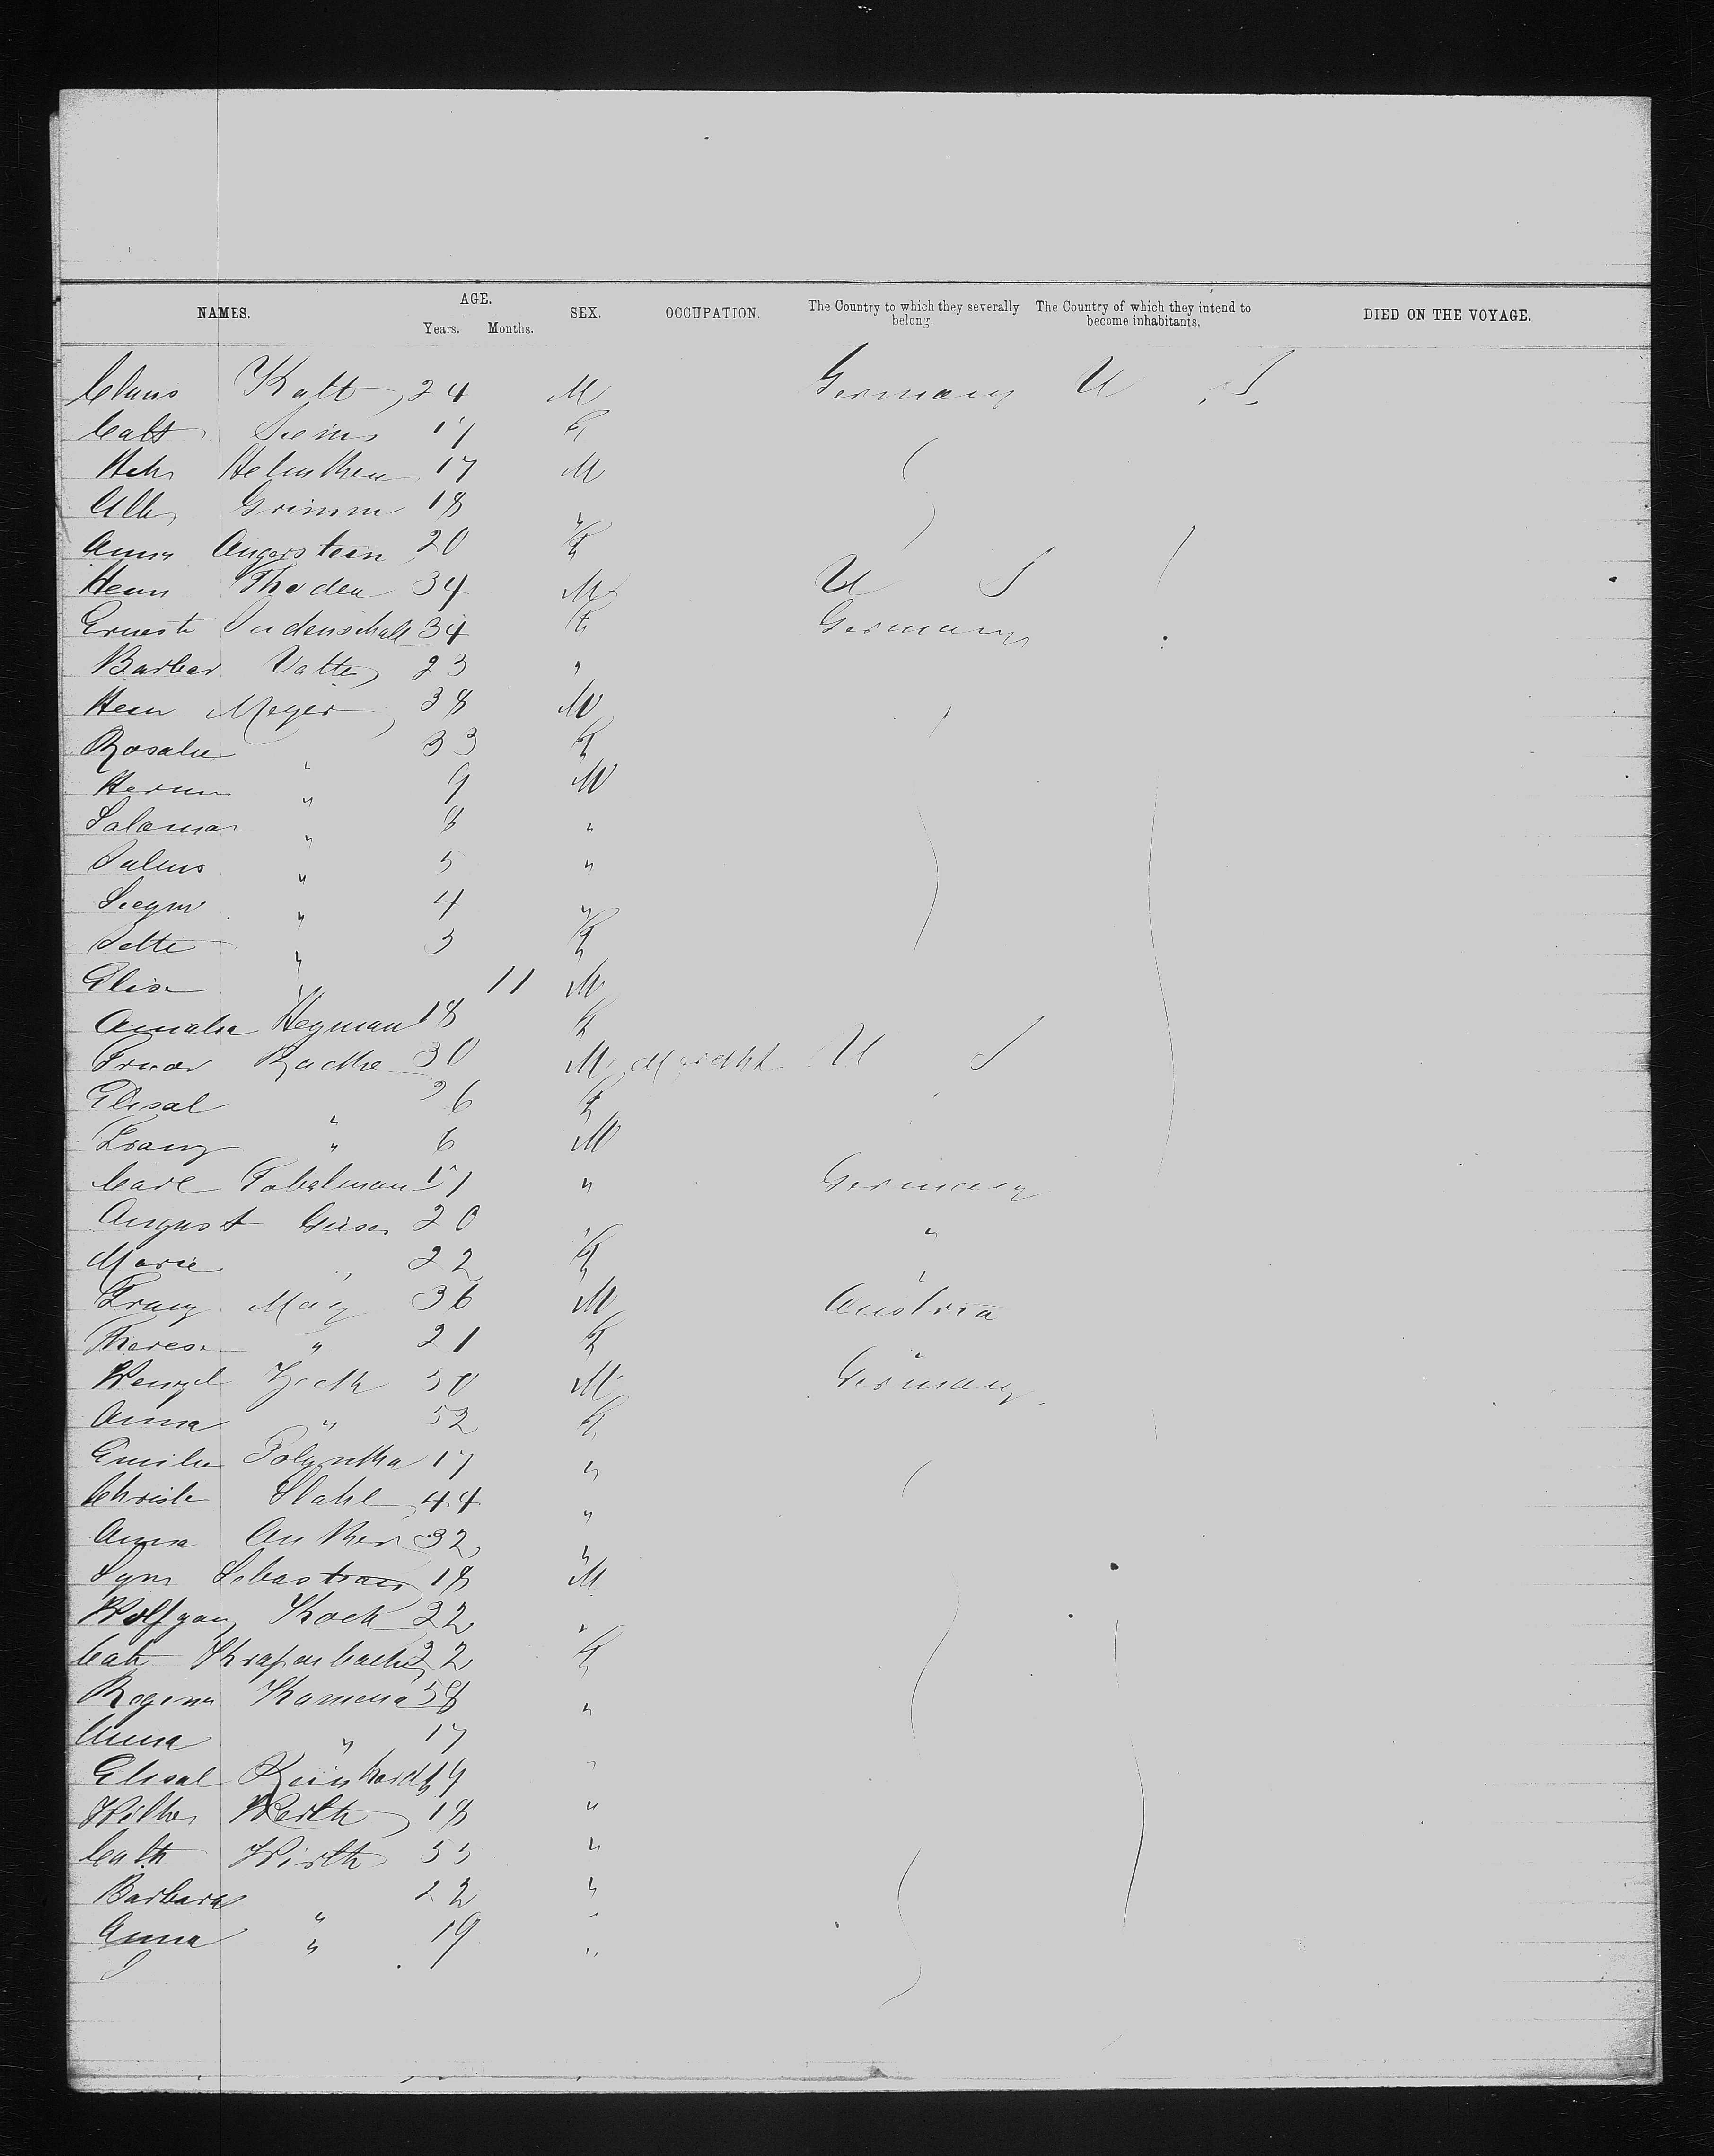 NAMES. AGE. Years. Months. SEX. OCCUPATION. The Country to which they severally belong. The Country of which they intend to become inhabitants. DIED ON THE VOYAGE.
Claus Katt 24 M Germany U S.
Cath 17 F
Helmthen 17 M
Grimm 18 "
Anna Angerstein 20 F
Henn Thoden 34 M U S
Ernesti 34 F Germany
Barbar Vatter 23 "
Henn Meyer 38 M
Rosalie " 33 F
Herm " 9 M
Saloma " 8 "
Julius " 5 "
Siegm " 4 "
Jette " 3 F
Elise " 11 M
Amalie Heyman 18 F
Rothe 30 M U S
Elisab " 26 F
Franz " 6 M
Carl Fabelman 17 " Germany
August 20 " "
Marie " 22 F "
Franz May 36 M Austria
Therese " 21 F "
Wenzel 50 M Germany
Anna " 52 F
Emilie 17 "
Christ Stahl 44 "
Anna 32 "
Sebastian 18 M
Wolfgang Koch 32 "
Cath 22 F
Regina Kamena 58 "
Anna " 17
Elisab Reinhardt 19 "
Wilh Werth 18 "
Cath Wirth 55 "
Barbara " 22 "
Anna " 19 "